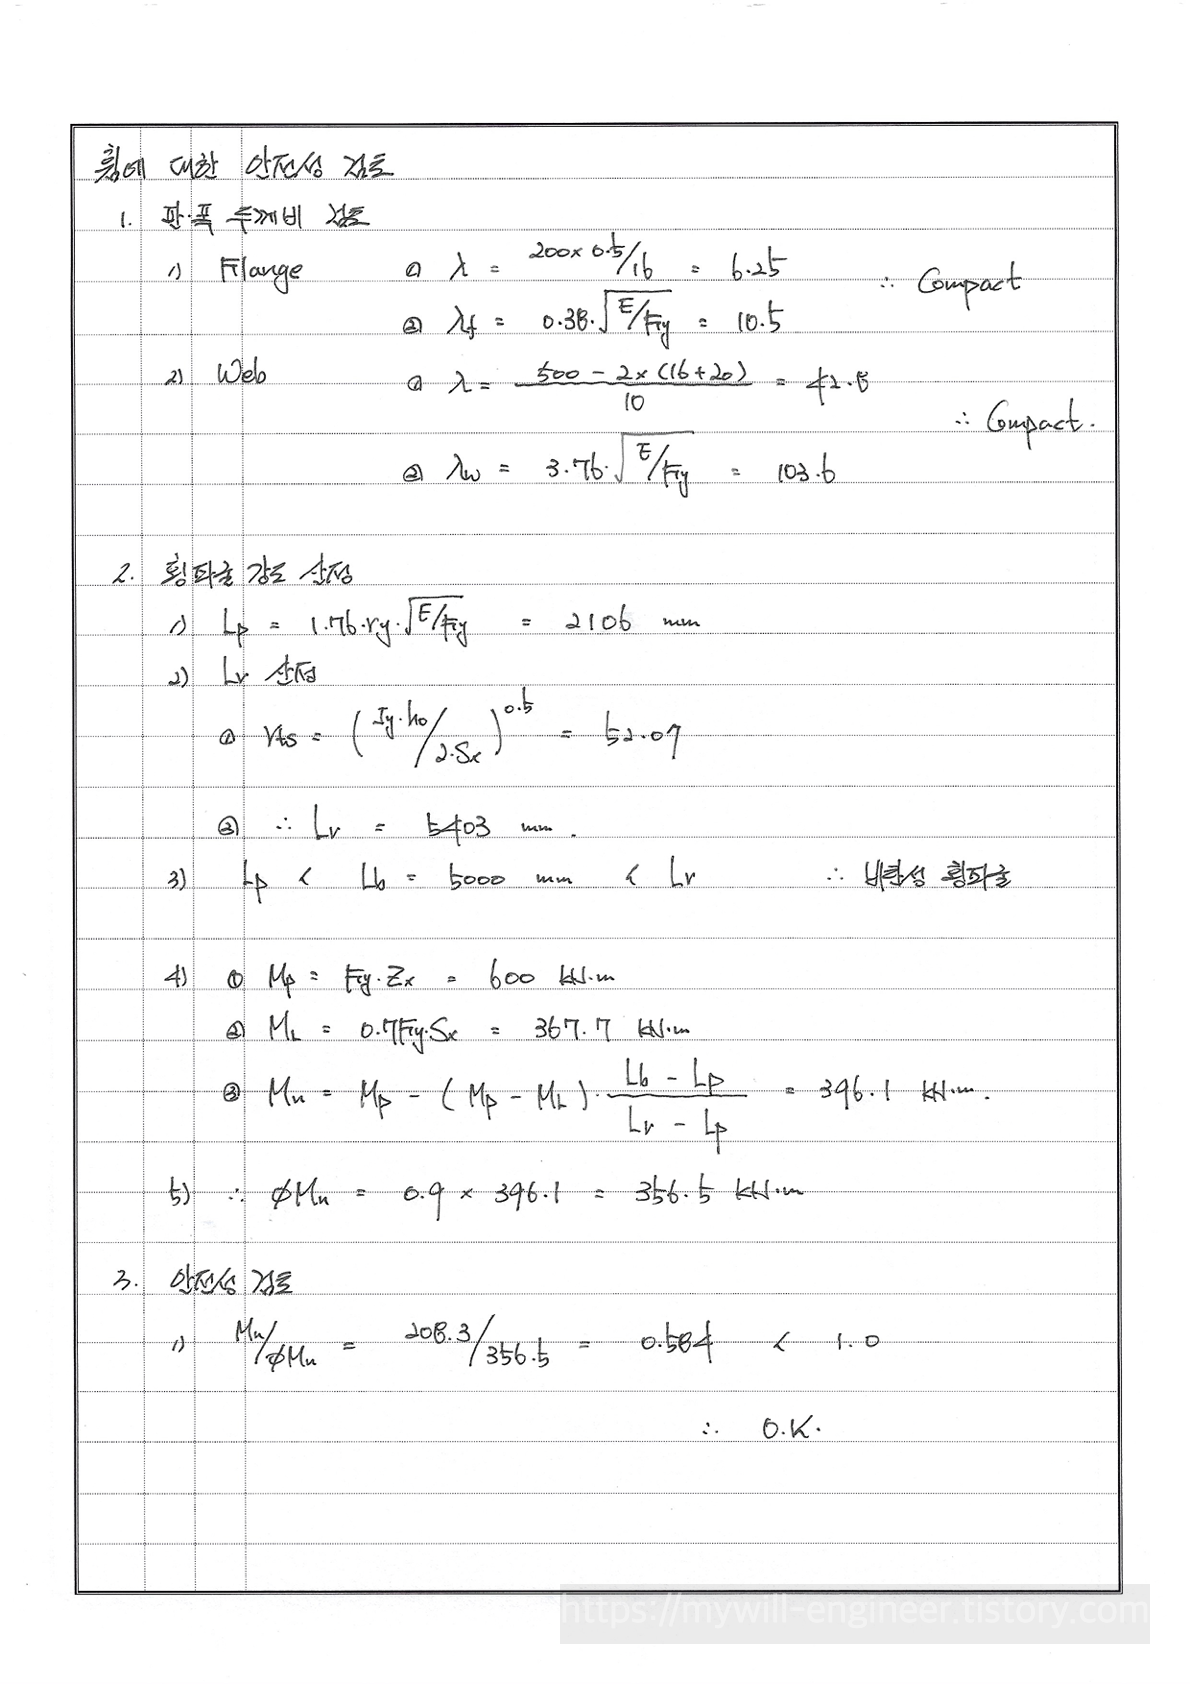 휨에 대한 안전성 검토
1. 판·폭 두께비 검토
1) Flange ① λ = 200×0.5/16 = 6.25
∴ Compact
② λf = 0.38·√E/Fy = 10.5
2) Web ① λ = 500 - 2×(16+20) / 10 = 42.8
∴ Compact.
② λw = 3.76·√E/Fy = 103.6
2. 횡좌굴 강도 산정
1) Lp = 1.76·ry·√E/Fy = 2106 mm
2) Lr 산정
① rts = (Iy·ho/2·Sx)^0.5 = 52.07
② ∴ Lr = 5403 mm.
3) Lp < Lb = 5000 mm < Lr ∴ 비탄성 횡좌굴
4) ① Mp = Fy·Zx = 600 kN·m
② ML = 0.7Fy·Sx = 367.7 kN·m
③ Mn = Mp - (Mp - ML)· Lb - Lp / Lr - Lp = 396.1 kN·m.
5) ∴ φMn = 0.9 × 396.1 = 356.5 kN·m
3. 안전성 검토
1) Mu/φMn = 208.3/356.5 = 0.584 < 1.0
∴ O.K.
https://mywill-engineer.tistory.com